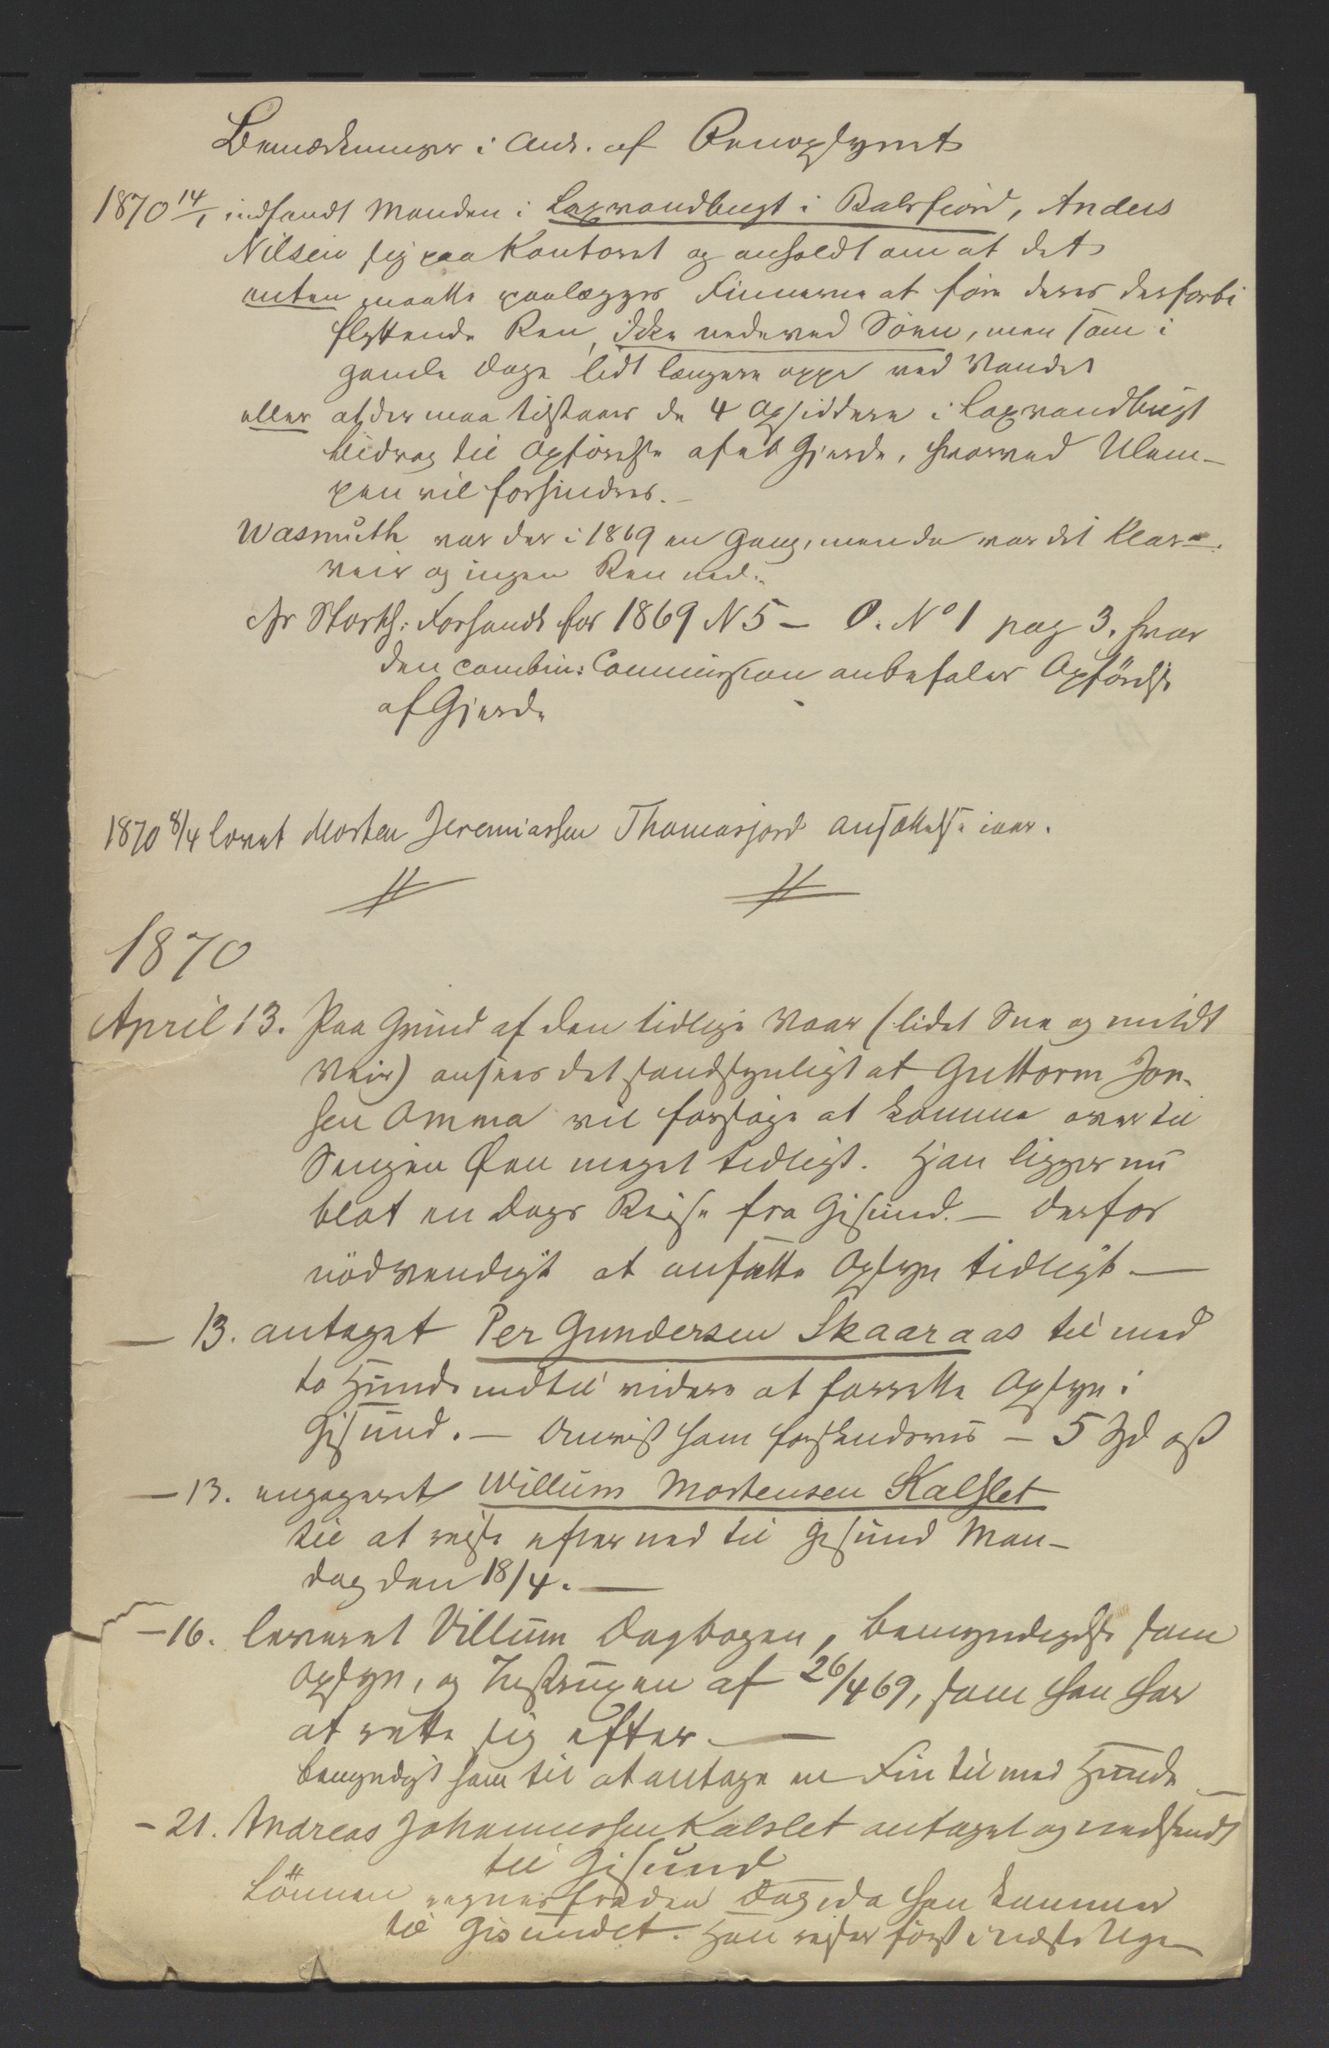 Bemærkninger i Anl. af Renopsynet
1870 14/1 indfandt Manden i Laxvandbugt i Balsfiord, Anders
Nilsen sig paa Kontoret og anholdt om at det
enten maatte paalægges Finnerne at føre deres derforbi
flyttende Ren, ikke nede ved Søen, men som i
gamle Dage lidt længere oppe ved Vandet
eller at der maa tilstaaes de 4 Opsiddere i Laxvandbugt
bidrag til Opførelse af et Gjerde, hvorved Ulem-
pen vil forhindres.
Wasmuth var der i 1869 en Gang, men da var det klar-
veir og ingen Ren ned.
cfr Storth: Forhandl for 1869 N 5 - O. No 1 pag 3. hvor
den combin: Commission anbefaler Opförelse
af Gjerde
1870 8/4 lovet Morten Jeremiassen Thomasjord ansættelse iaar.
1870
April 13. Paa Grund af den tidlige Vaar (lidet Sne og mildt
Veir) ansees det sandsynligt at Guttorm Jon-
sen Omma vil forsøge at komme over til
Senjen Øen meget tidligt. Han ligger nu
blot en Dags Reise fra Gisund. - Derfor
nödvendigt at ansætte Opsyn tidligt -
- 13. antaget Per Gundersen Skaaraas til med
to Hunde indtil videre at forrette Opsyn i
Gisund. - Anvist ham forskudsvis - 5 Spd
- 13. engageret Willum Mortensen Kalslet
til at reise efter ned til Gisund Man-
dag den 18/4. -
- 16. leveret Villum Dagbogen, Bemyndigelse som
Opsyn, og Instruxen af 26/4 69, som han har
at rette sig efter. -
bemyndiget ham til at antage en Fin til med Hunde
- 21. Andreas Johannessen Kalslet antaget og nedsendt
til Gisund
Lönnen regnes fra den Dag da han kommer
til Gisundet. Han reiser først i næste Uge